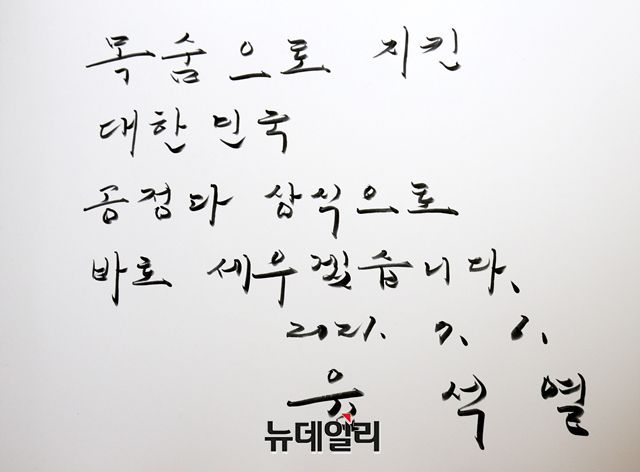 목숨으로 지킨
대한민국
공정과 상식으로
바로 세우겠습니다.
2021. 7. 6.
윤석열
뉴데일리